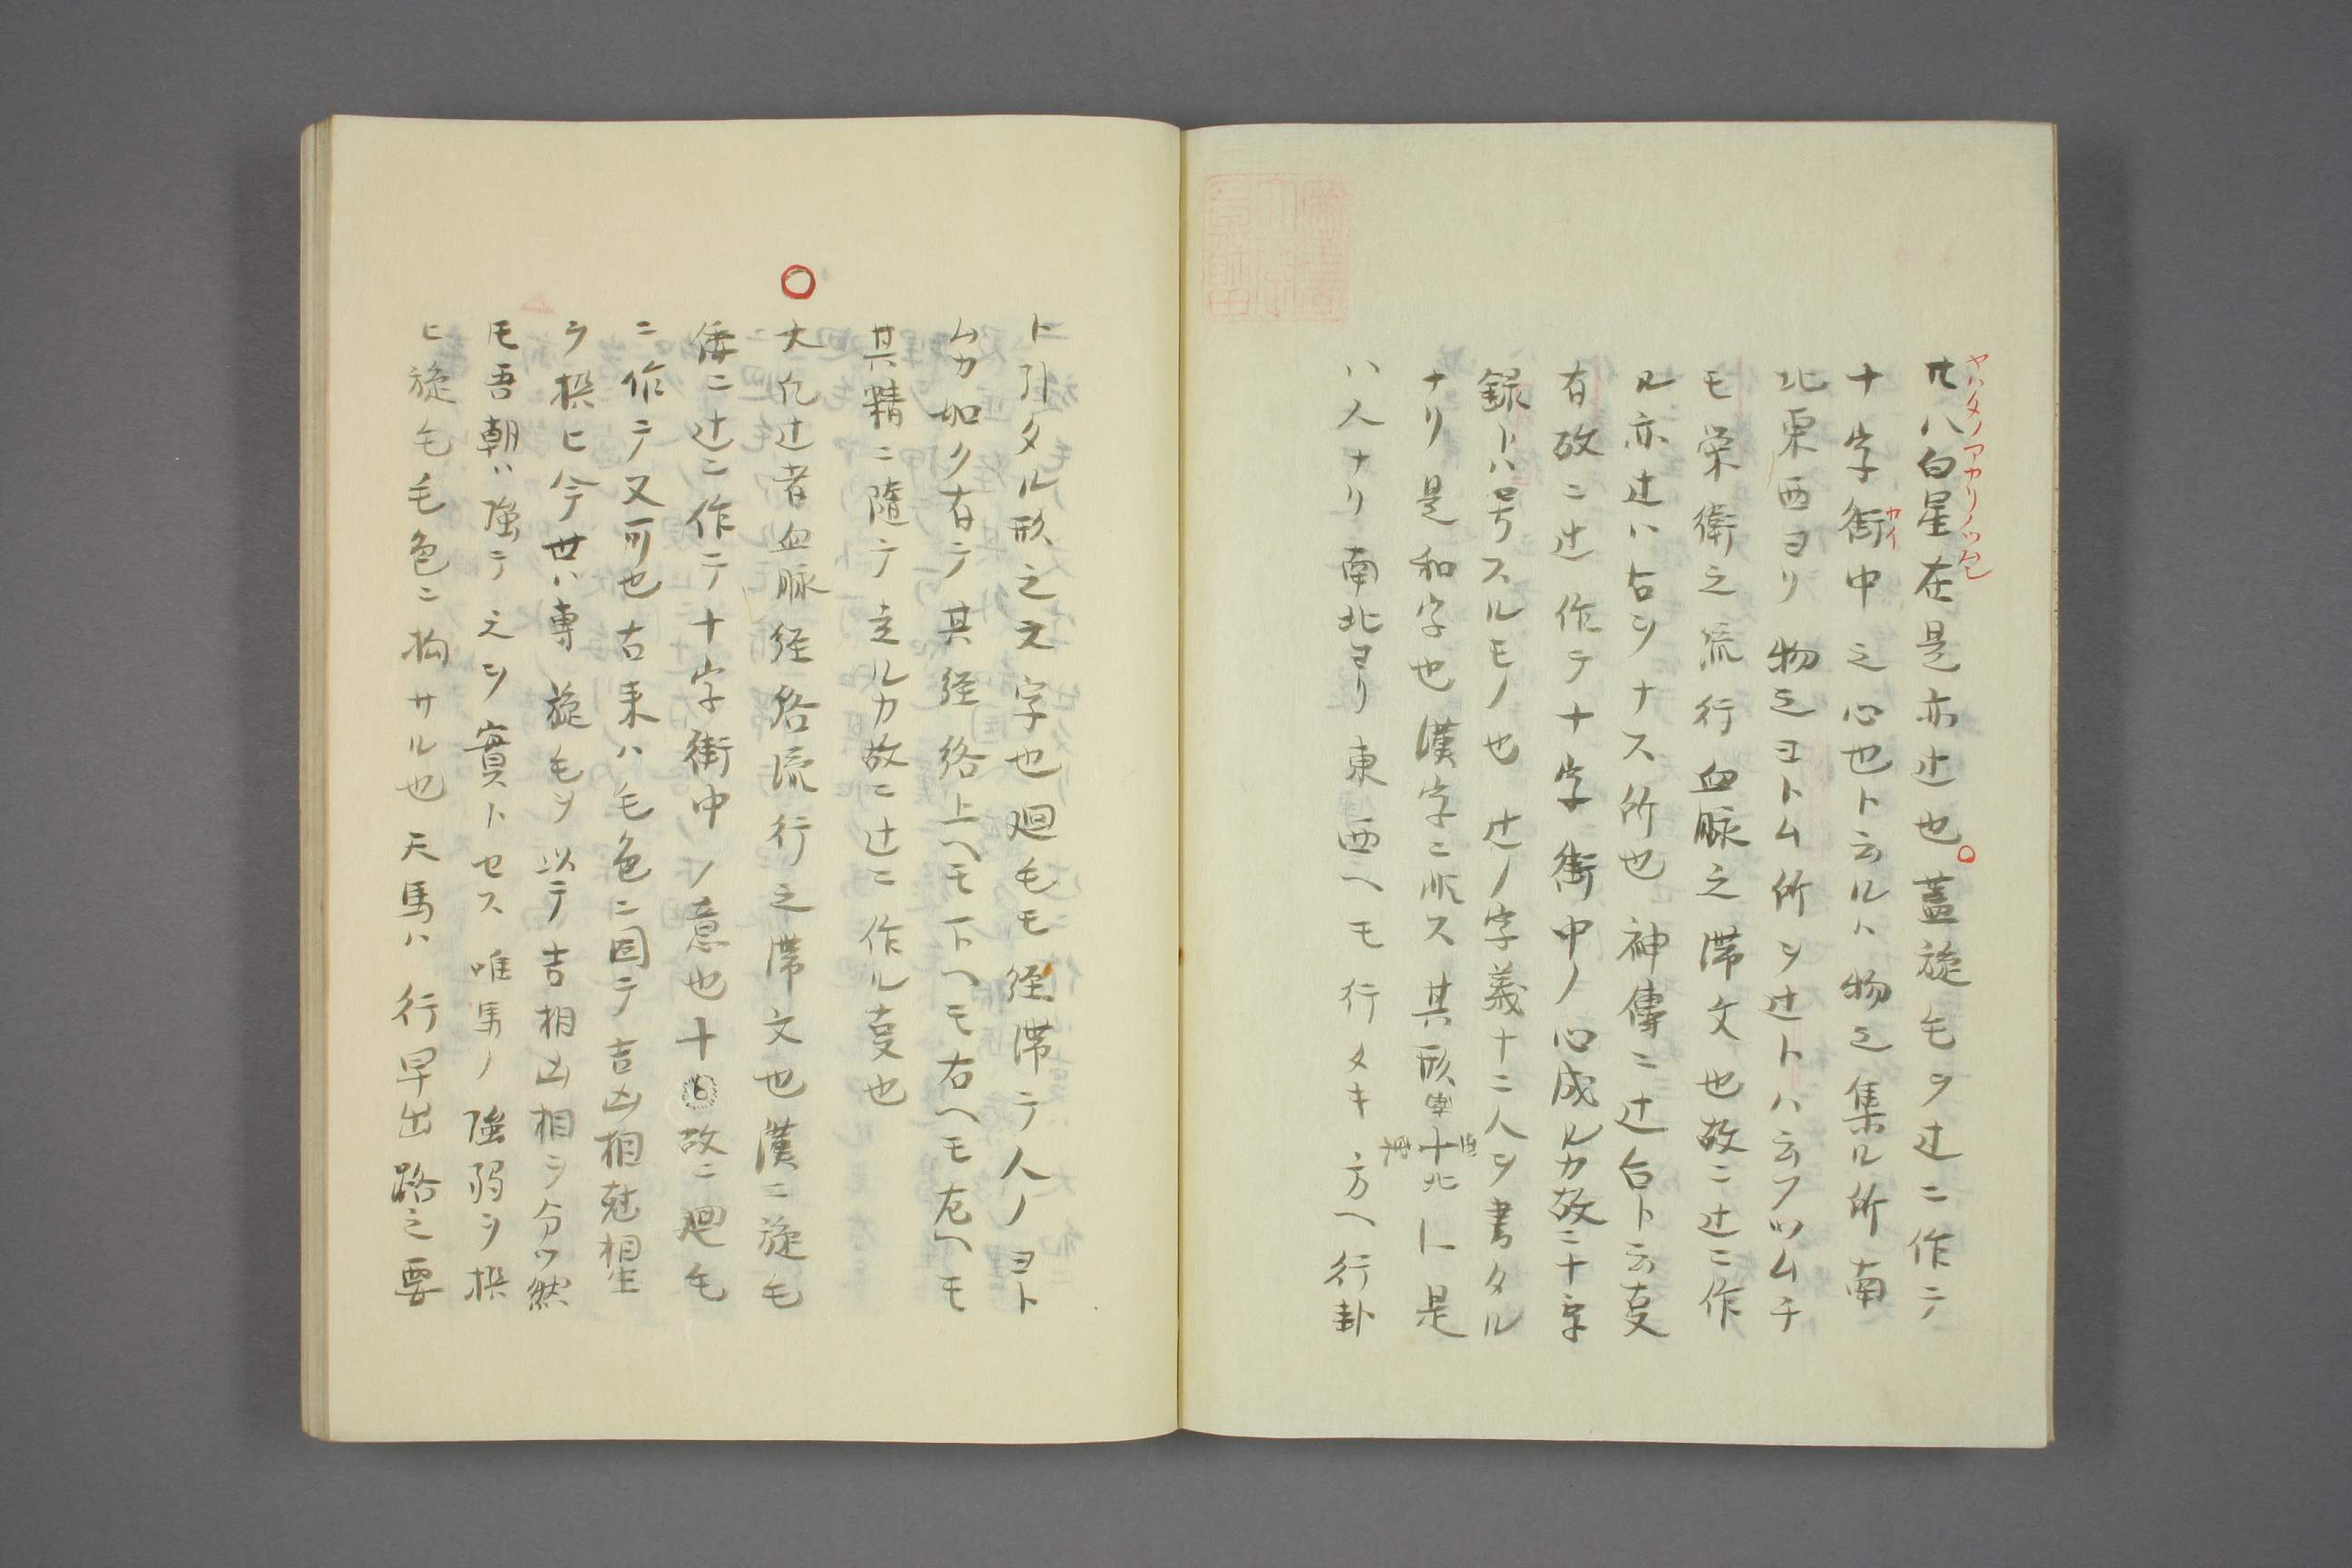 廿八白星在是亦辻也蓋旋毛ヲ辻ニ作テ
ヤハタノアカリノツムシ
十字街中之心也ト云ルハ物之集ル所南
カイ
北東西ヨリ物之ヨトム所ヲ辻トハ云フツムチ
モ栄衛之流行血脉之滞文也故ニ辻ニ作
ル亦辻ハ占ヲナス所也神傳ニ辻占ト云叓
有故ニ辻作テ十字街中ノ心成ルカ故ニ十字
録トハ号スルモノ也辻ノ字義十ニ人ヲ書タル
ナリ是和字也漢字ニ順ス其形東十北ト是
ハ人ナリ南北ヨリ東西ヘモ行タキ方ヘ行卦
ト引タル形之文字也廻毛モ経滞テ人ノヨト
ムカ如ク有テ其経絡上ヘモ下ヘモ右ヘモ左ヘモ
其精ニ隨テ走ルカ故ニ辻ニ作ル叓也
大凡辻者血脉経絡流行之滞文也漢ニ旋毛
倭ニ辻ニ作テ十字街中ノ意也十故ニ廻毛
ニ作テ又可也古来ハ毛色ニ因テ吉凶相尅相生
ヲ撰ヒ今世ハ専旋毛ヲ以テ吉相凶相ヲ分ツ然
モ吾朝ハ強テ之ヲ實トセス唯馬ノ強弱ヲ撰
ヒ旋毛毛色ニ拘サル也天馬ハ行早出路之要